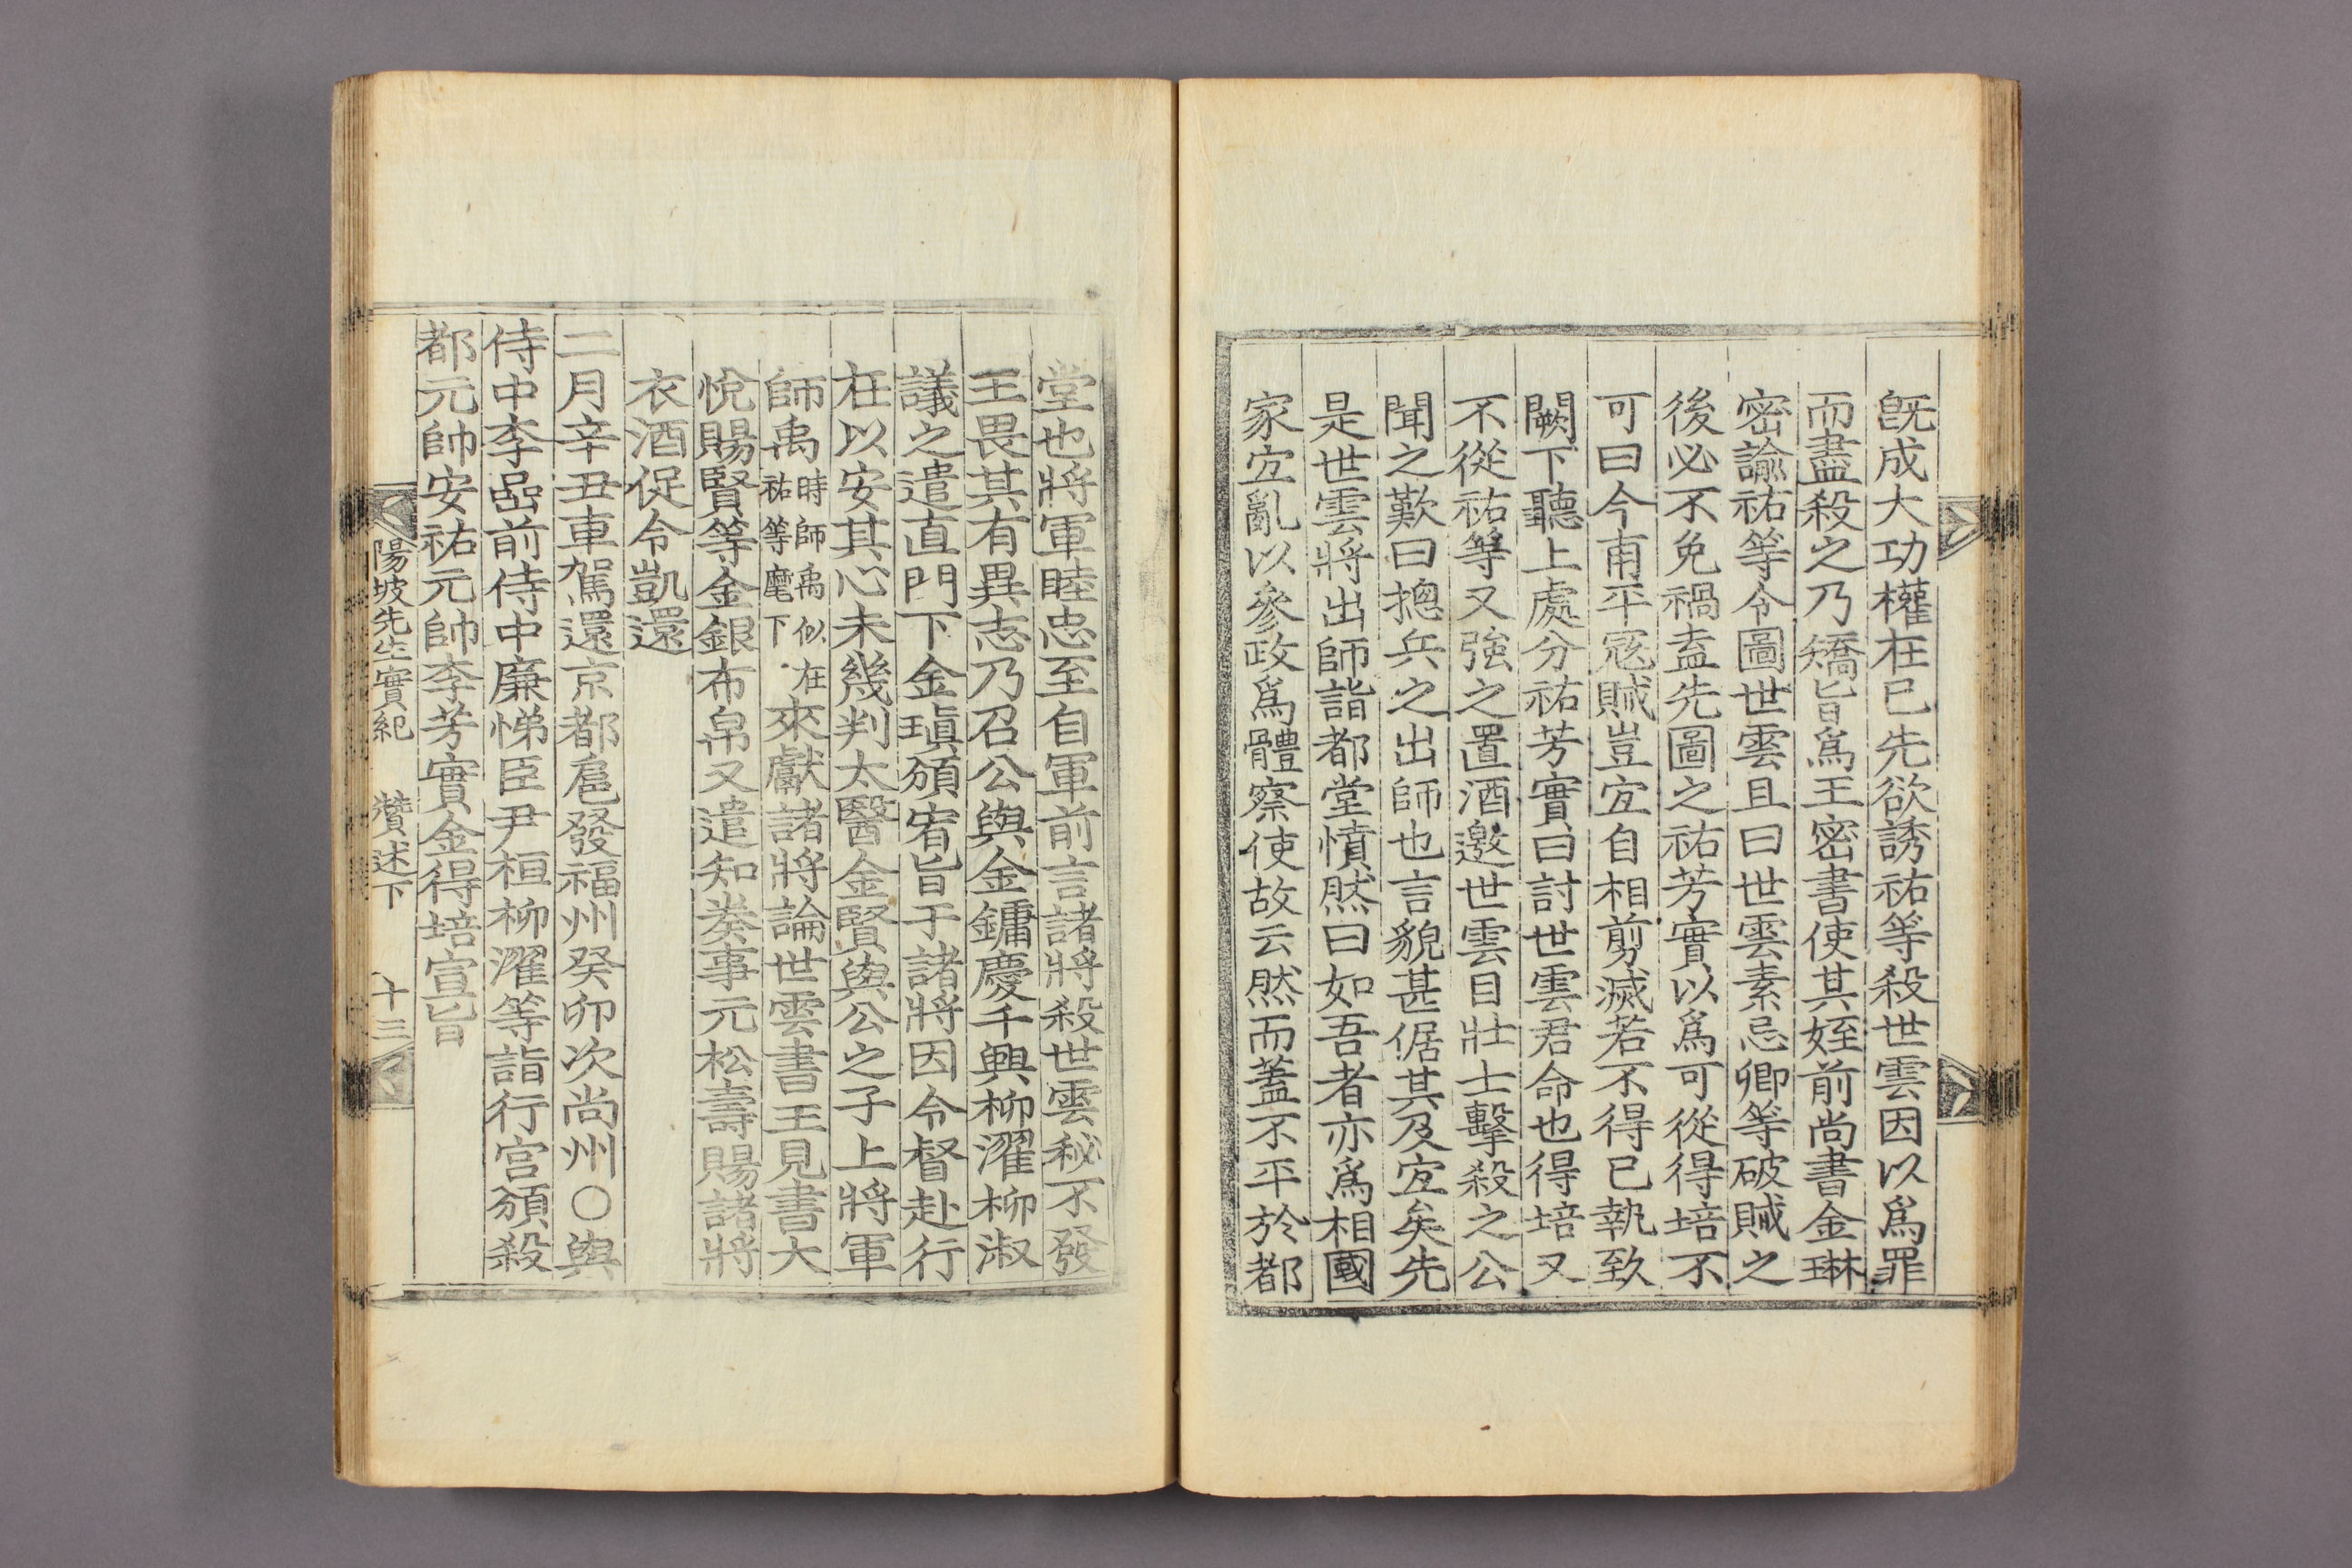 旣成大功權在已先欲誘祐等殺世雲因以爲罪
而盡殺之乃矯旨爲王密書使其姪前尙書金琳
密諭祐等令圖世雲且曰世雲素忌卿等破賊之
後必不免禍盍先圖之祐芳實以爲可從得培不
可曰今甫平冦賊豈宜自相剪滅若不得已執致
闕下聽上處分祐芳實曰討世雲君命也得培又
不從祐等又強之置酒邀世雲目壯士擊殺之公
聞之歎曰摠兵之出師也言貌甚倨其及宜矣先
是世雲將出師詣都堂憤然曰如吾者亦爲相國
家宜亂以參政爲體察使故云然而蓋不平於都
堂也將軍睦忠至自軍前言諸將殺世雲秘不發
王畏其有異志乃召公與金鏞慶千興柳濯柳淑
議之遣直門下金瑱頒宥旨于諸將因令督赴行
在以安其心未幾判太醫金賢與公之子上將軍
師禹時師禹似在祐等麾下來獻諸將論世雲書王見書大
悅賜賢等金銀布帛又遣知奏事元松壽賜諸將
衣酒促令凱還
二月辛丑車駕還京都扈發福州癸卯次尙州○與
侍中李嵒前侍中廉悌臣尹桓柳濯等詣行宮頒殺
都元帥安祐元帥李芳實金得培宣旨
陽坡先生實紀 贊述下 十三